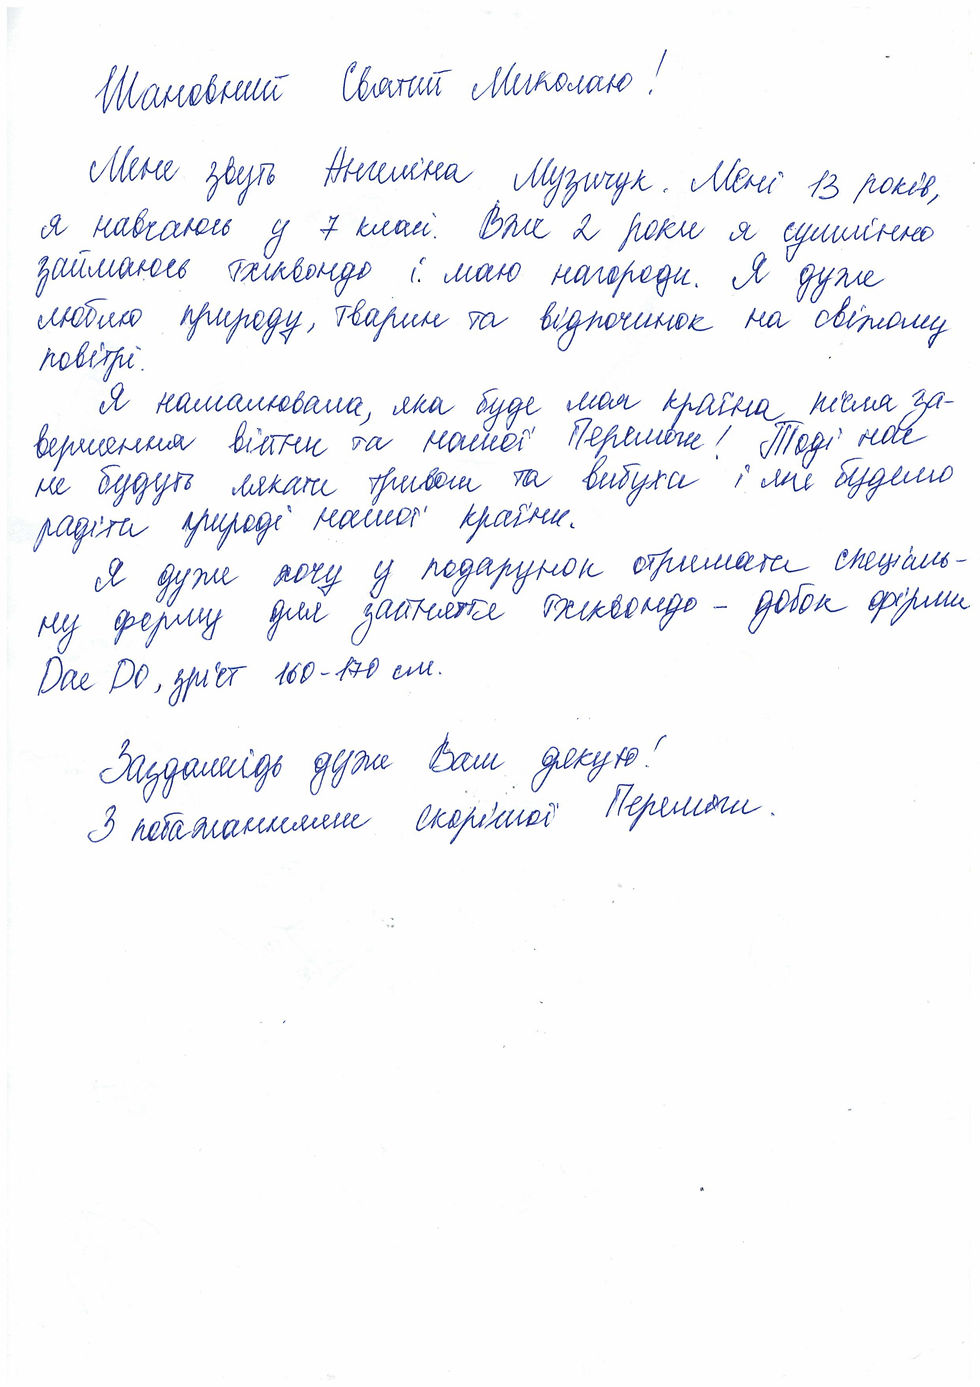 Шановний Святий Миколаю!
Мене звуть Ангеліна Музичук. Мені 13 років,
я навчаюсь у 7 класі. Вже 2 роки я сумлінно
займаюсь тхіквондо і маю нагороди. Я дуже
люблю природу, тварин та відпочинок на свіжому
повітрі.
Я намалювала, яка буде моя країна після за-
вершення війни та нашої Перемоги! Тоді нас
не будуть лякати тривоги та вибухи і ми будемо
радіти природі нашої країни.
Я дуже хочу у подарунок отримати спеціаль-
ну форму для заняття тхіквондо - добок фірми
Dae Do, зріст 160-170 см.
Заздалегідь дуже Вам дякую!
З побажаннями скорішої Перемоги.